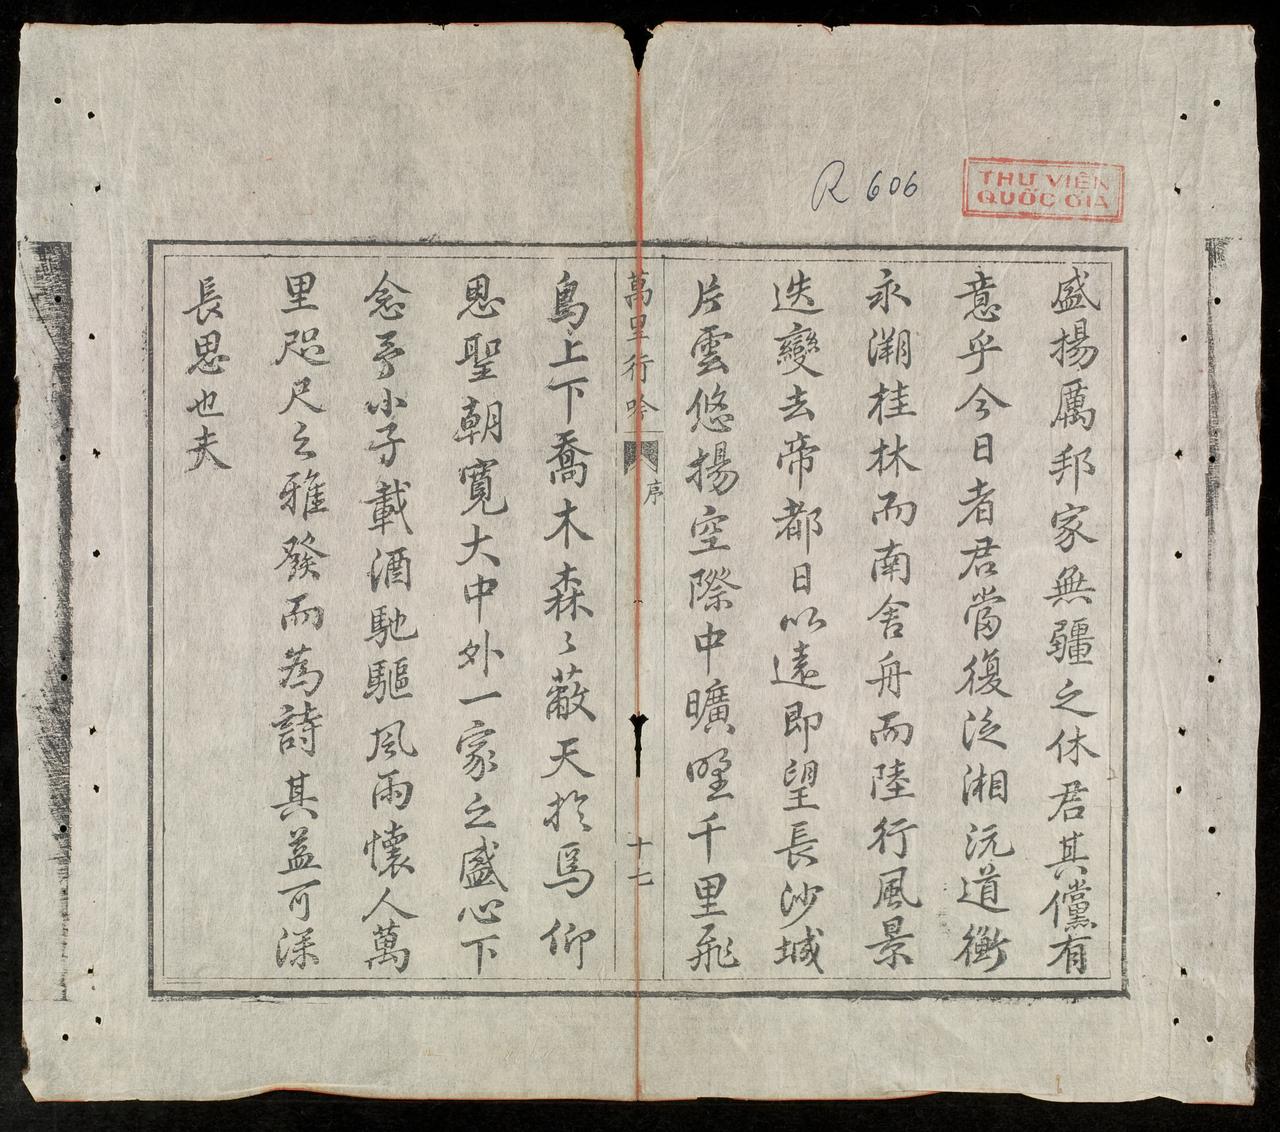 R 606
THƯ VIỆN
QUỐC GIA
盛揚厲邦家無疆之休君其儻有
意乎今日者君當復泛湘沅道衡
永溯桂林而南舍舟而陸行風景
迭變去帝都日以遠即望長沙城
片雲悠揚空際中曠野千里飛
萬里行吟
序
十七
鳥上下喬木森〻蔽天於焉仰
思聖朝寬大中外一家之盛心下
念予小子載酒馳驅風雨懷人萬
里咫尺之雅發而為詩其益可深
長思也夫